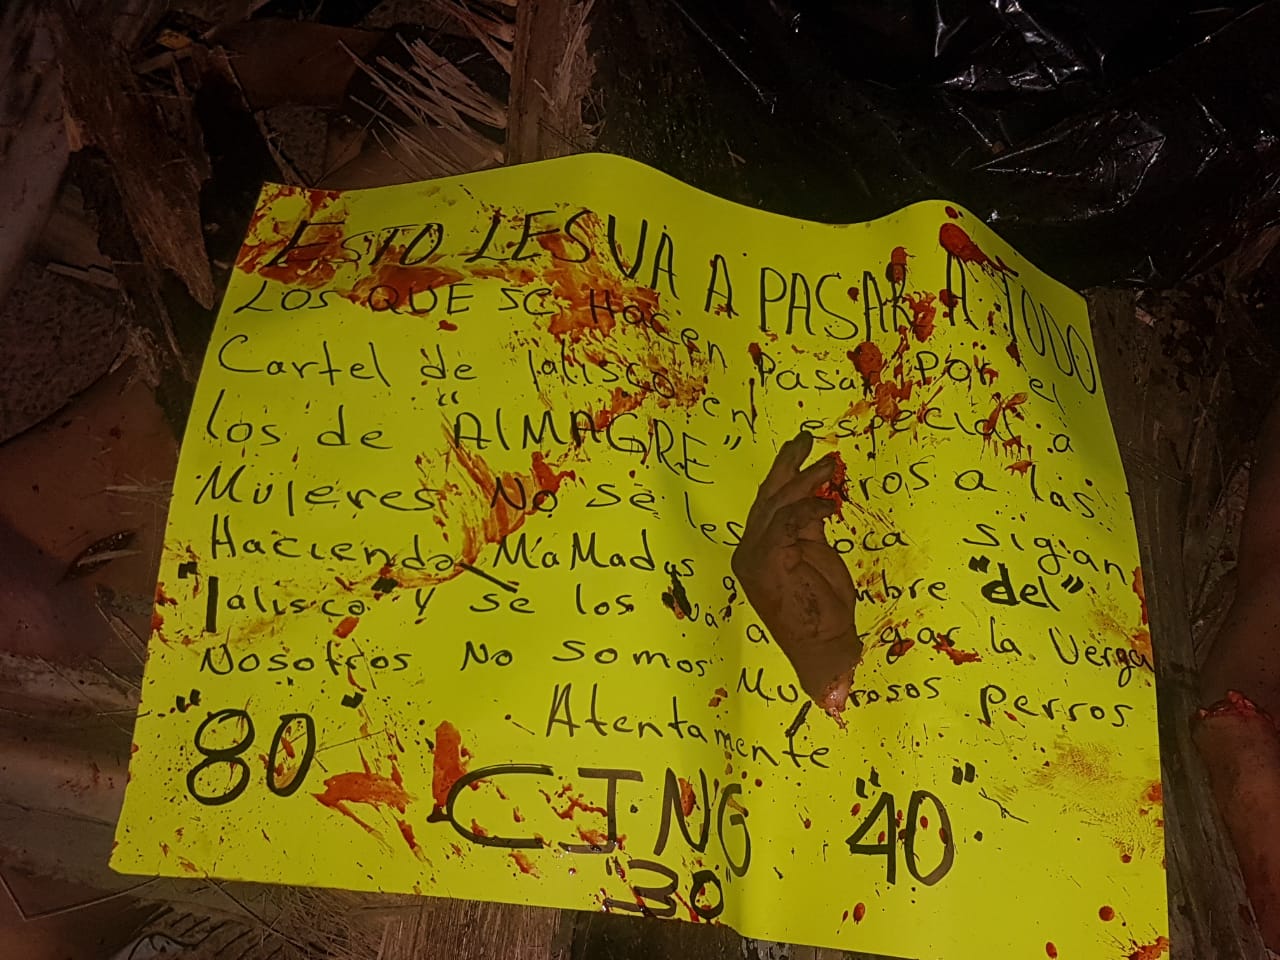 ESTO LES VA A PASAR A TODO
LOS QUE SE Hacen Pasar Por el
Cartel de Jalisco en especial a
los de "AlMAGRE" ros a las
MUJeres No se les oca sigan
Haciendo MaMadas a mbre "del"
"Jalisco" y se los va a gar la Verga
Nosotros No somos Mu rosos perros
Atentamente
"80" CJNG "40"
"30"